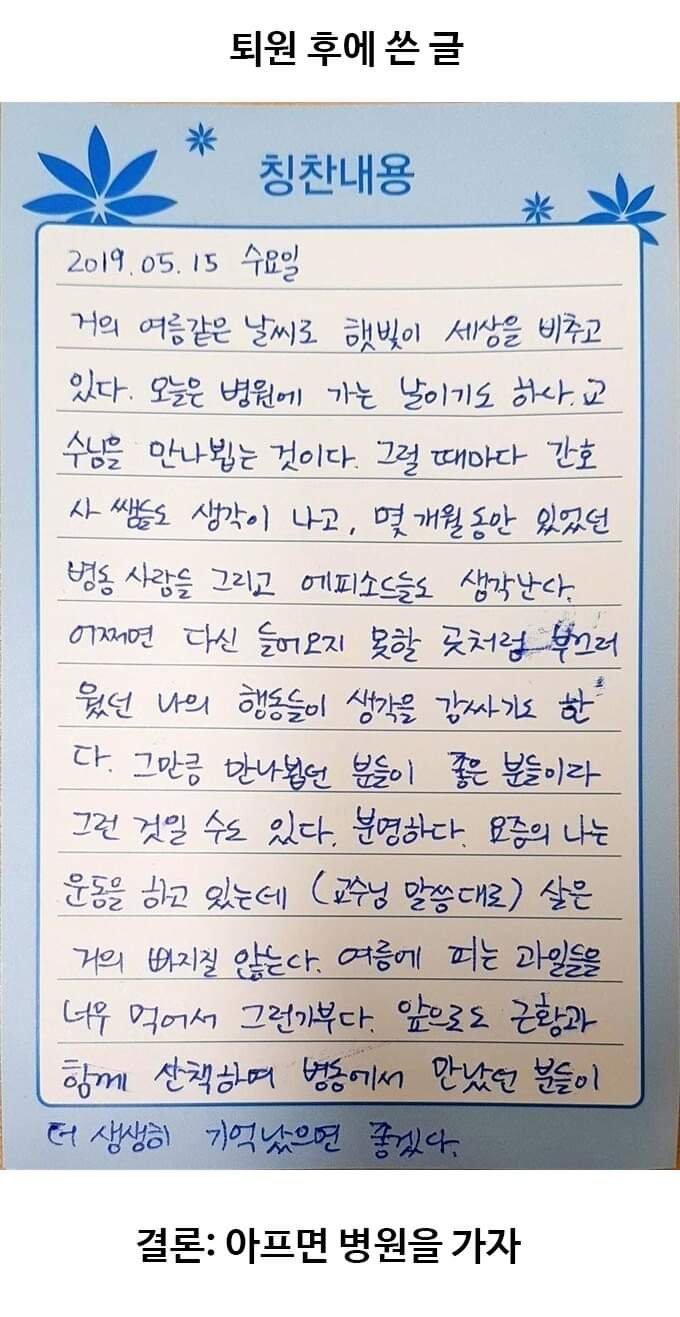 퇴원 후에 쓴 글
칭찬내용
2019.05.15 수요일
거의 여름같은 날씨로 햇빛이 세상을 비추고
있다. 오늘은 병원에 가는 날이기도 하다. 교
수님을 만나뵙는 것이다. 그럴 때마다 간호
사 쌤들도 생각이 나고, 몇 개월동안 있었던
병동 사람들 그리고 에피소드들도 생각난다.
어쩌면 다신 들어오지 못할 곳처럼 부끄러
웠던 나의 행동들이 생각을 감싸기도 한
다. 그만큼 만나뵙던 분들이 좋은 분들이라
그런 것일 수도 있다. 분명하다. 요즘의 나는
운동을 하고 있는데 (교수님 말씀대로) 살은
거의 빠지질 않는다. 여름에 피는 과일들을
너무 먹어서 그런가부다. 앞으로도 근황과
함께 산책하며 병동에서 만났던 분들이
더 생생히 기억났으면 좋겠다.
결론: 아프면 병원을 가자